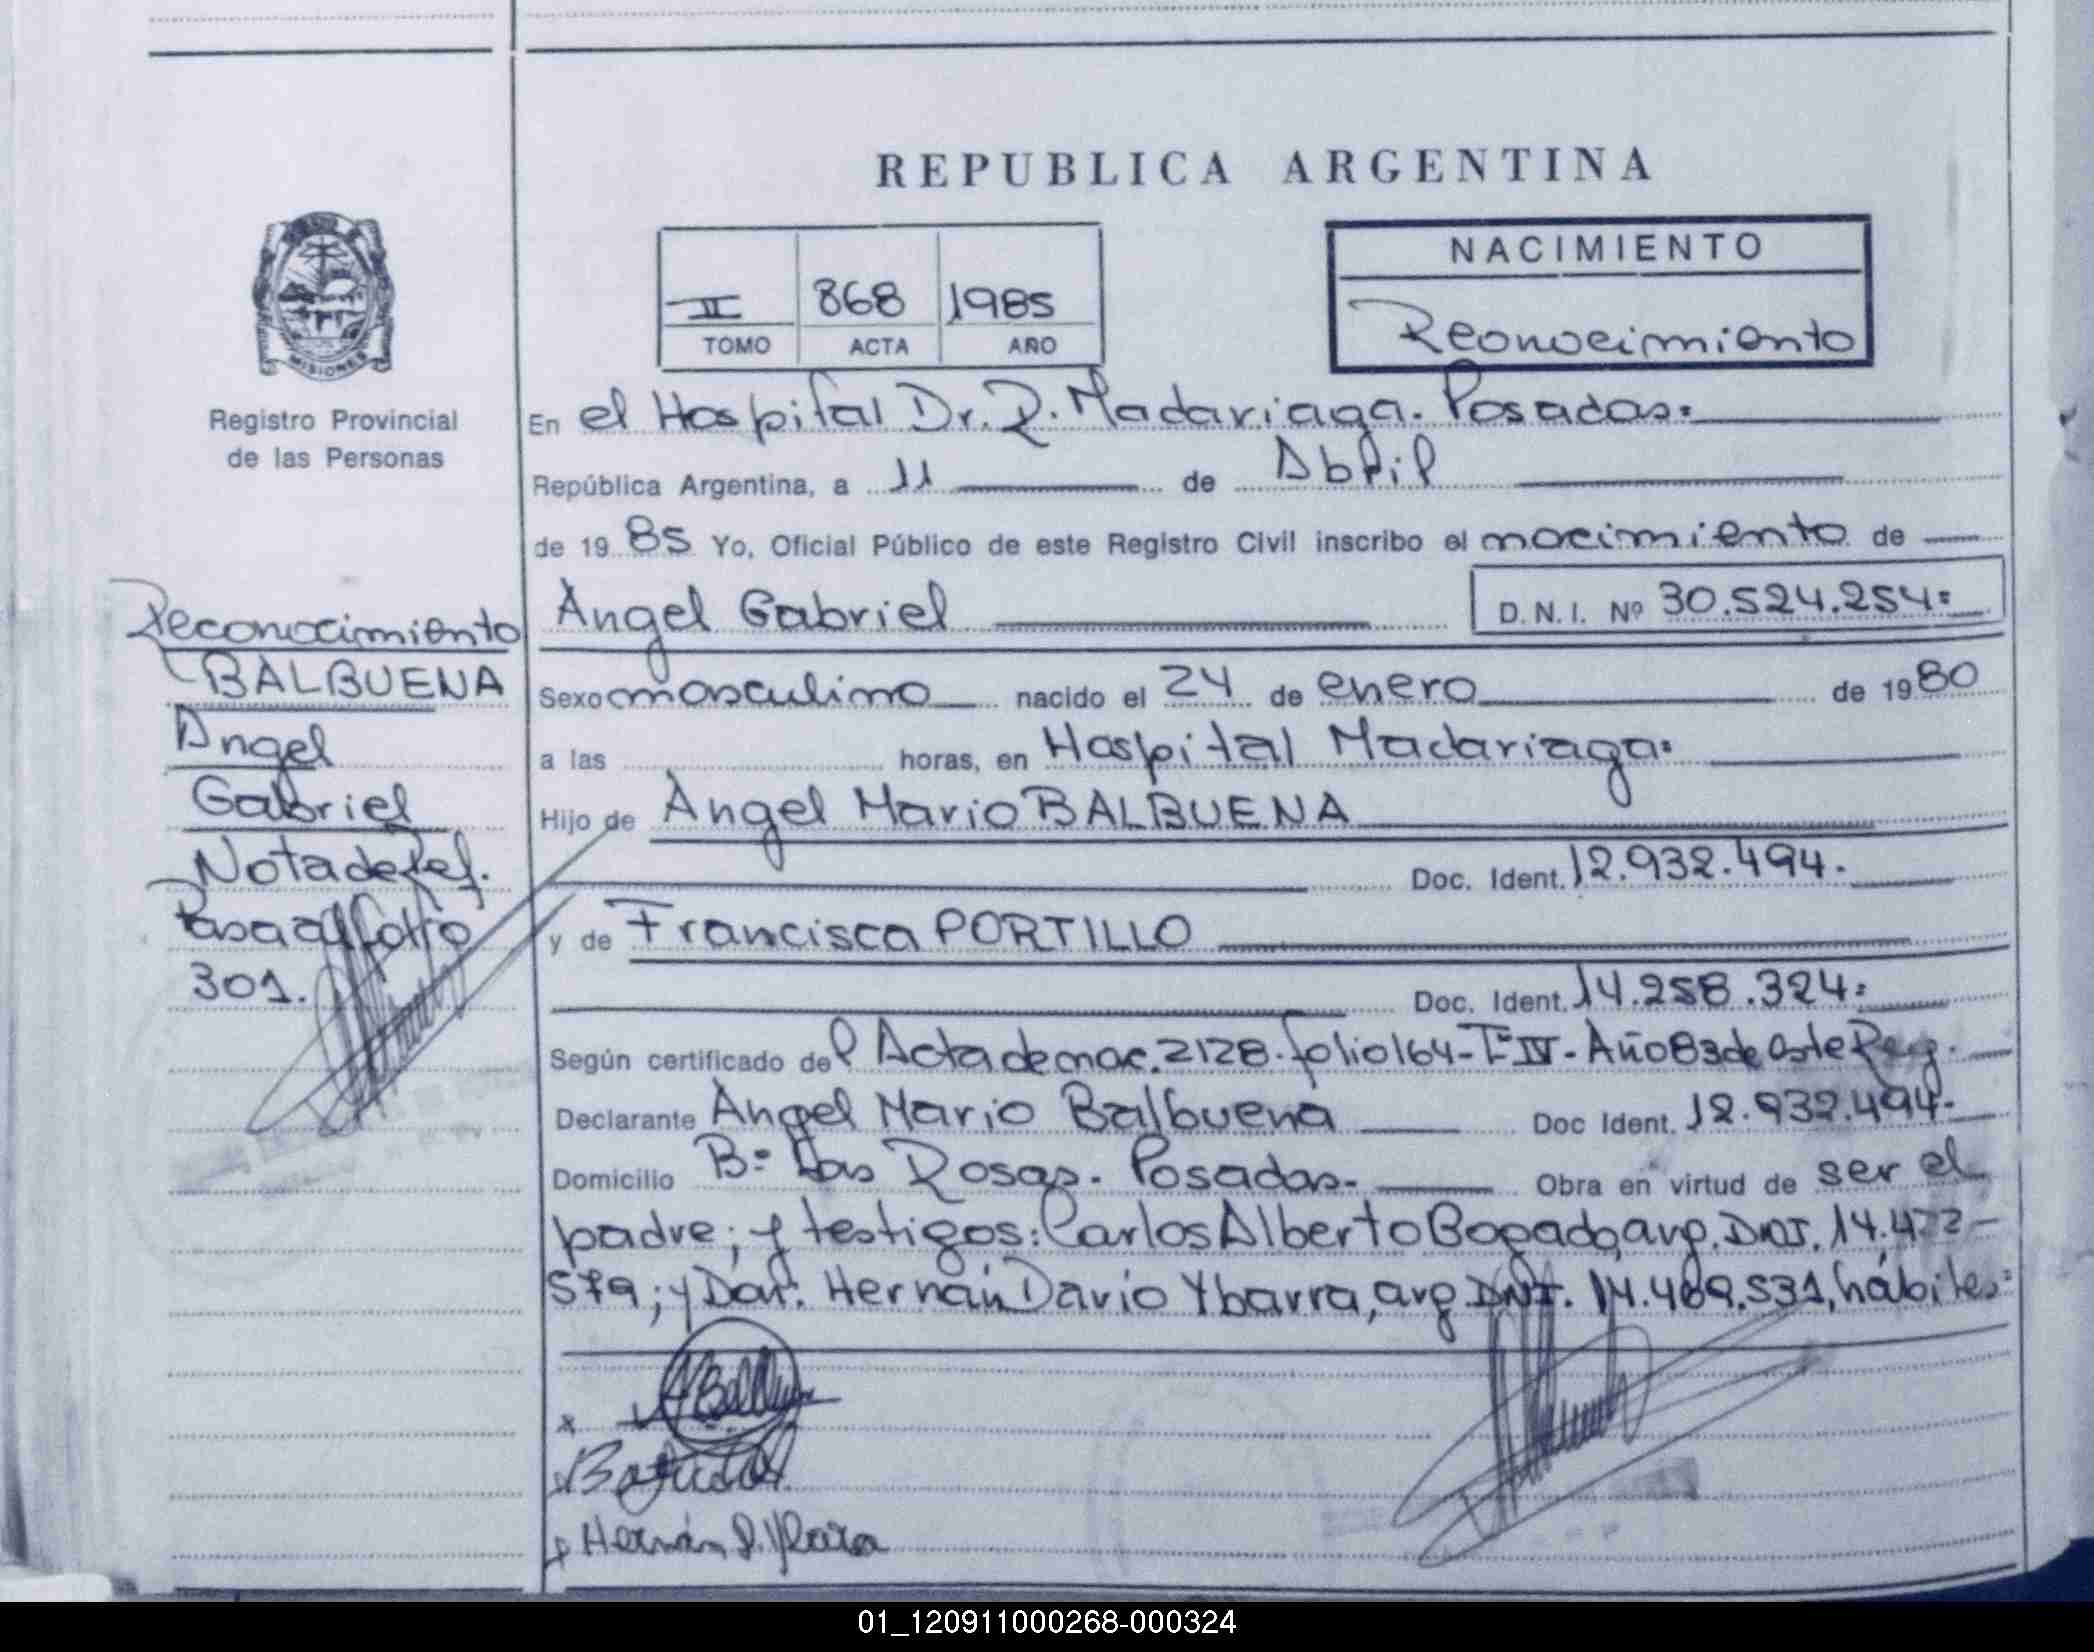 REPUBLICA ARGENTINA
II 868 1985
TOMO ACTA AÑO
NACIMIENTO
Reconocimiento
MISIONES
Registro Provincial
de las Personas
Reconocimiento
BALBUENA
Angel
Gabriel
Nota de Ref.
Pasa al folio
301.
En el Hospital Dr. R. Madariaga. Posadas=
República Argentina, a 11 de Abril
de 1985 Yo, Oficial Público de este Registro Civil inscribo el nacimiento de
Angel Gabriel D. N. I. Nº 30.524.254=
Sexo masculino nacido el 24 de enero de 1980
a las horas, en Hospital Madariaga=
Hijo de Angel Mario BALBUENA
Doc. Ident. 12.932.494.
y de Francisca PORTILLO
Doc. Ident. 14.258.324=
Según certificado del Acta de nac. 2128. folio 164-Tº IV- Año 83 de este Reg.
Declarante Angel Mario Balbuena Doc Ident. 12.932.494-
Domicilio Bº Las Rosas. Posadas.- Obra en virtud de ser el
padre; y testigos: Carlos Alberto Bogado, arg. DNI. 14.472-
579; y Dan. Hernán Dario Ybarra, arg DNI. 14.469.531, hábiles=
01_120911000268-000324